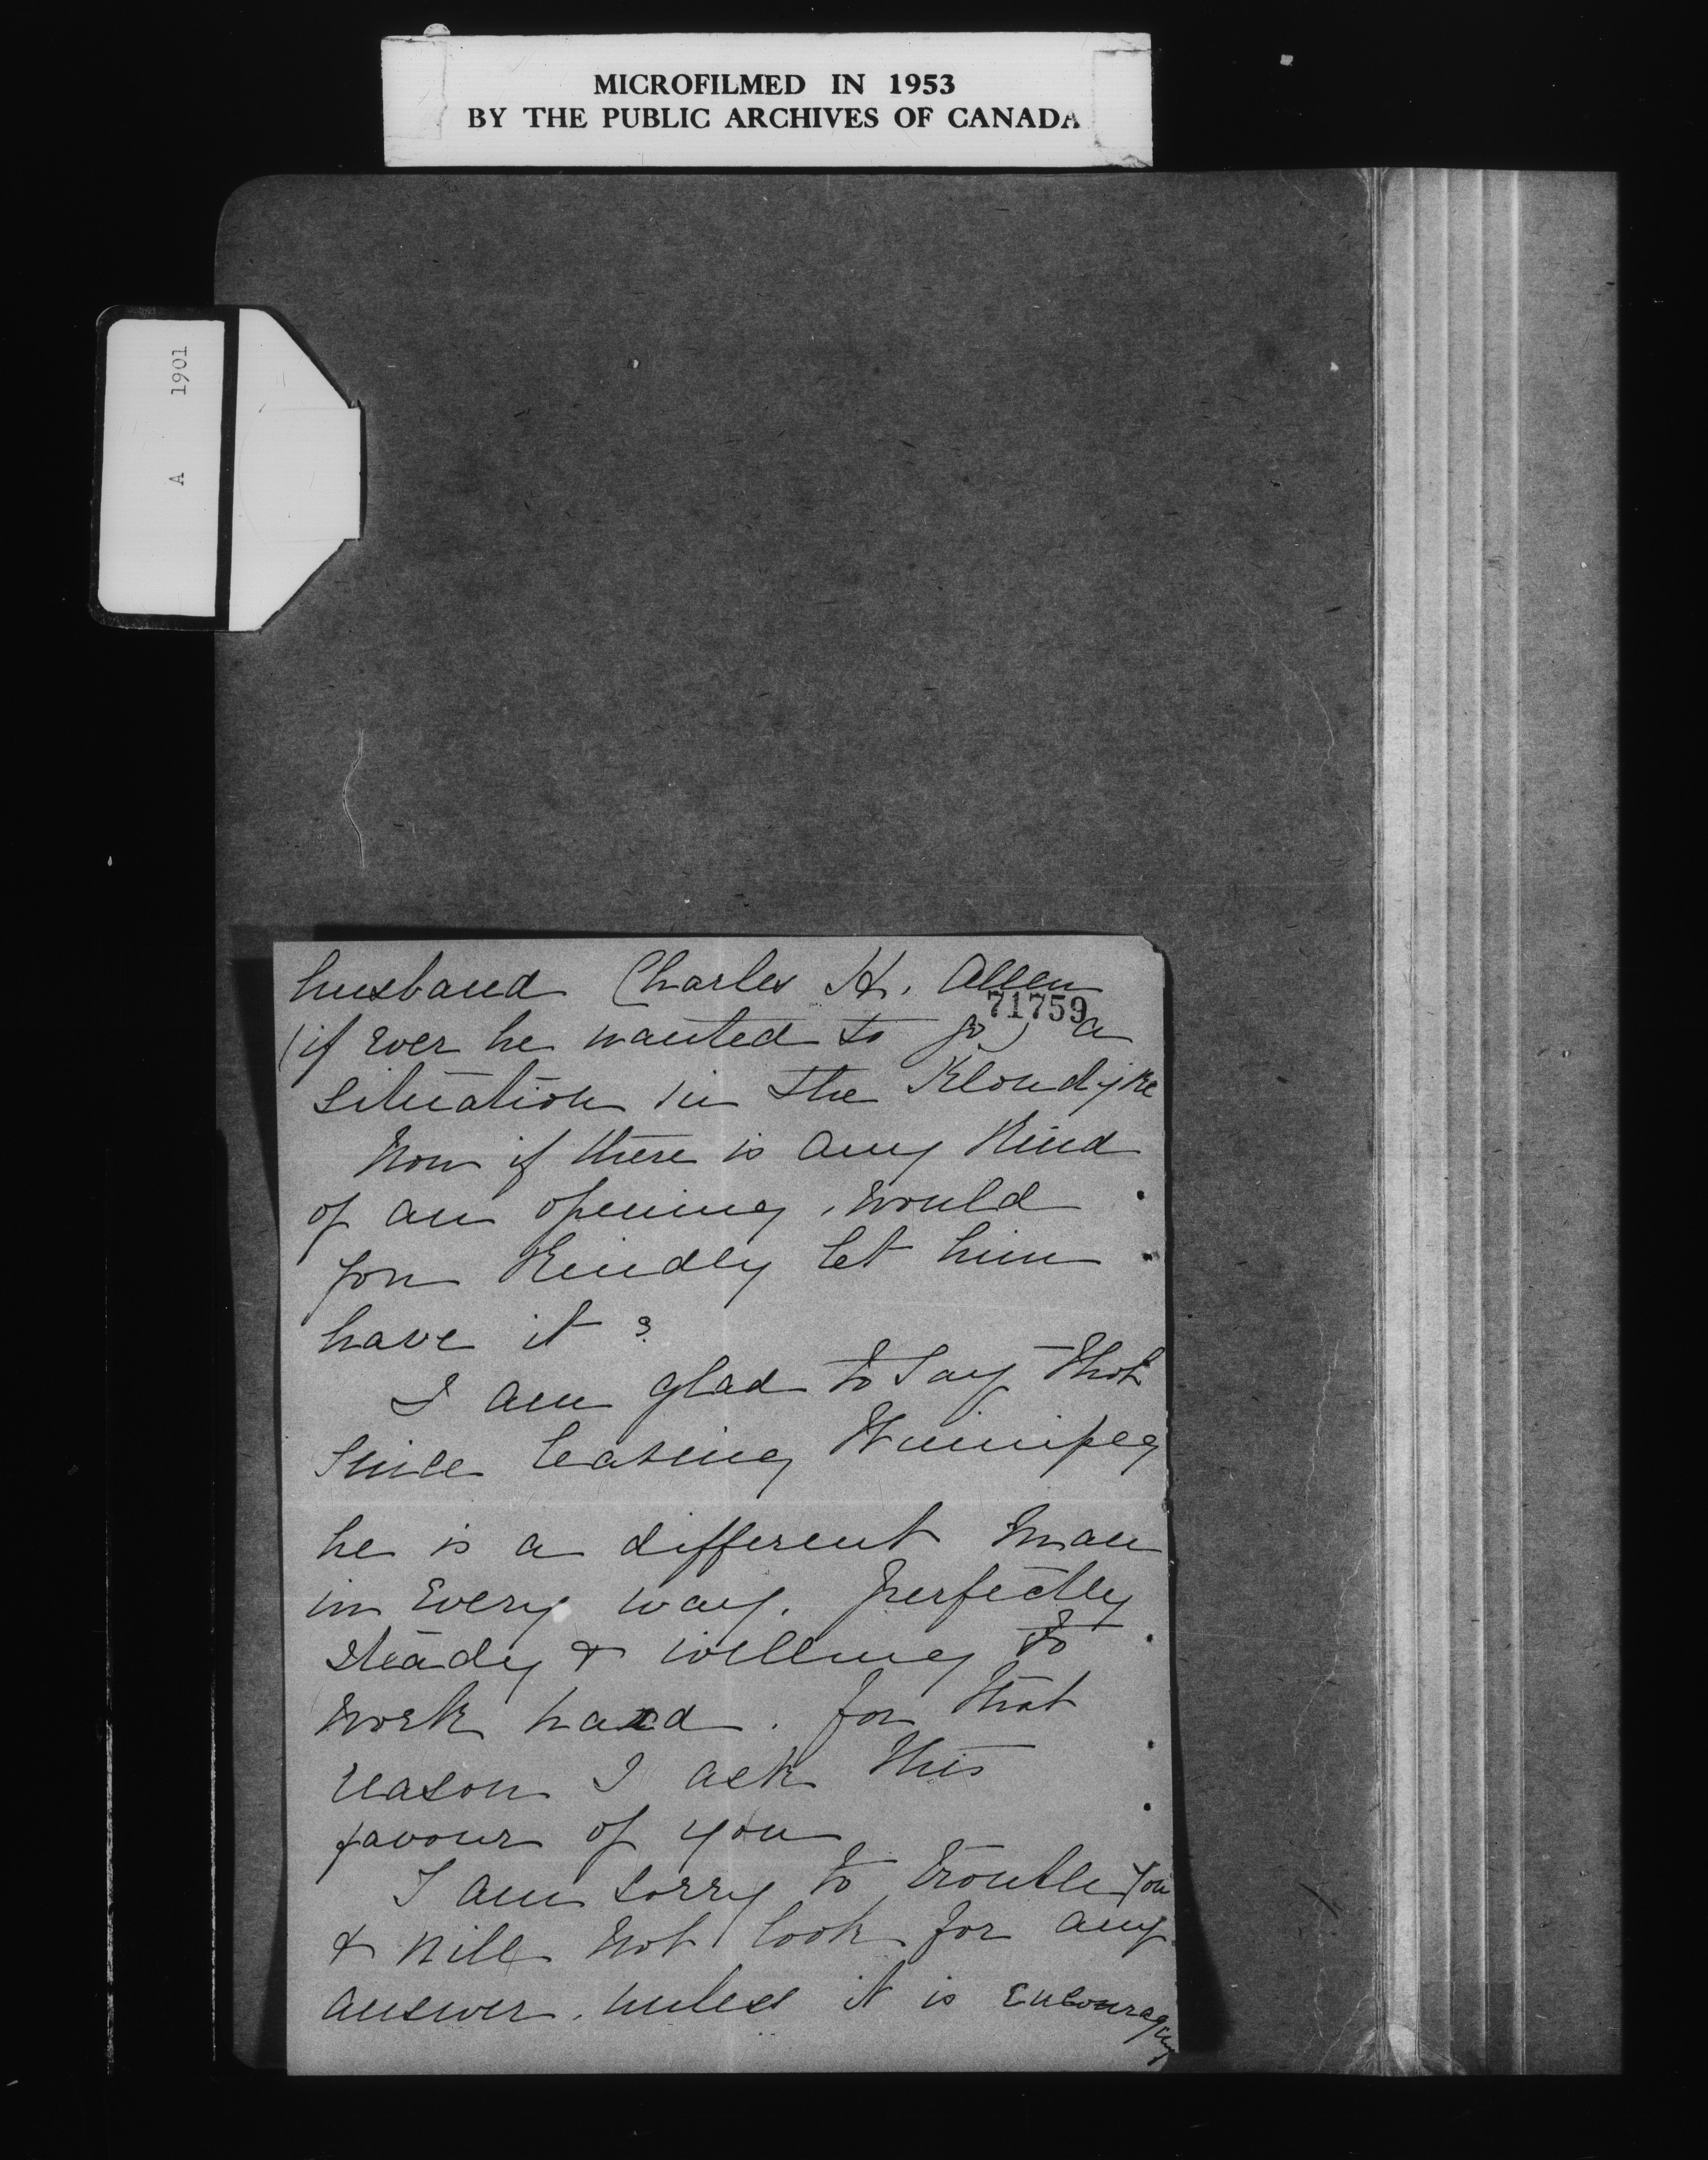 MICROFILMED IN 1953
BY THE PUBLIC ARCHIVES OF CANADA
A 1901
husband Charles H. Allen
71759
(if ever he wanted to go) a
situation in the Klondyke
Now if there is any kind
of an opening, would
you kindly let him
have it?
I am glad to say that
since leaving Winnipeg
he is a different man
in every way. perfectly
steady & willing to
work hard. for that
reason I ask this
favour of you
I am sorry to trouble you
& will not look for any
answer. unless it is encouraging